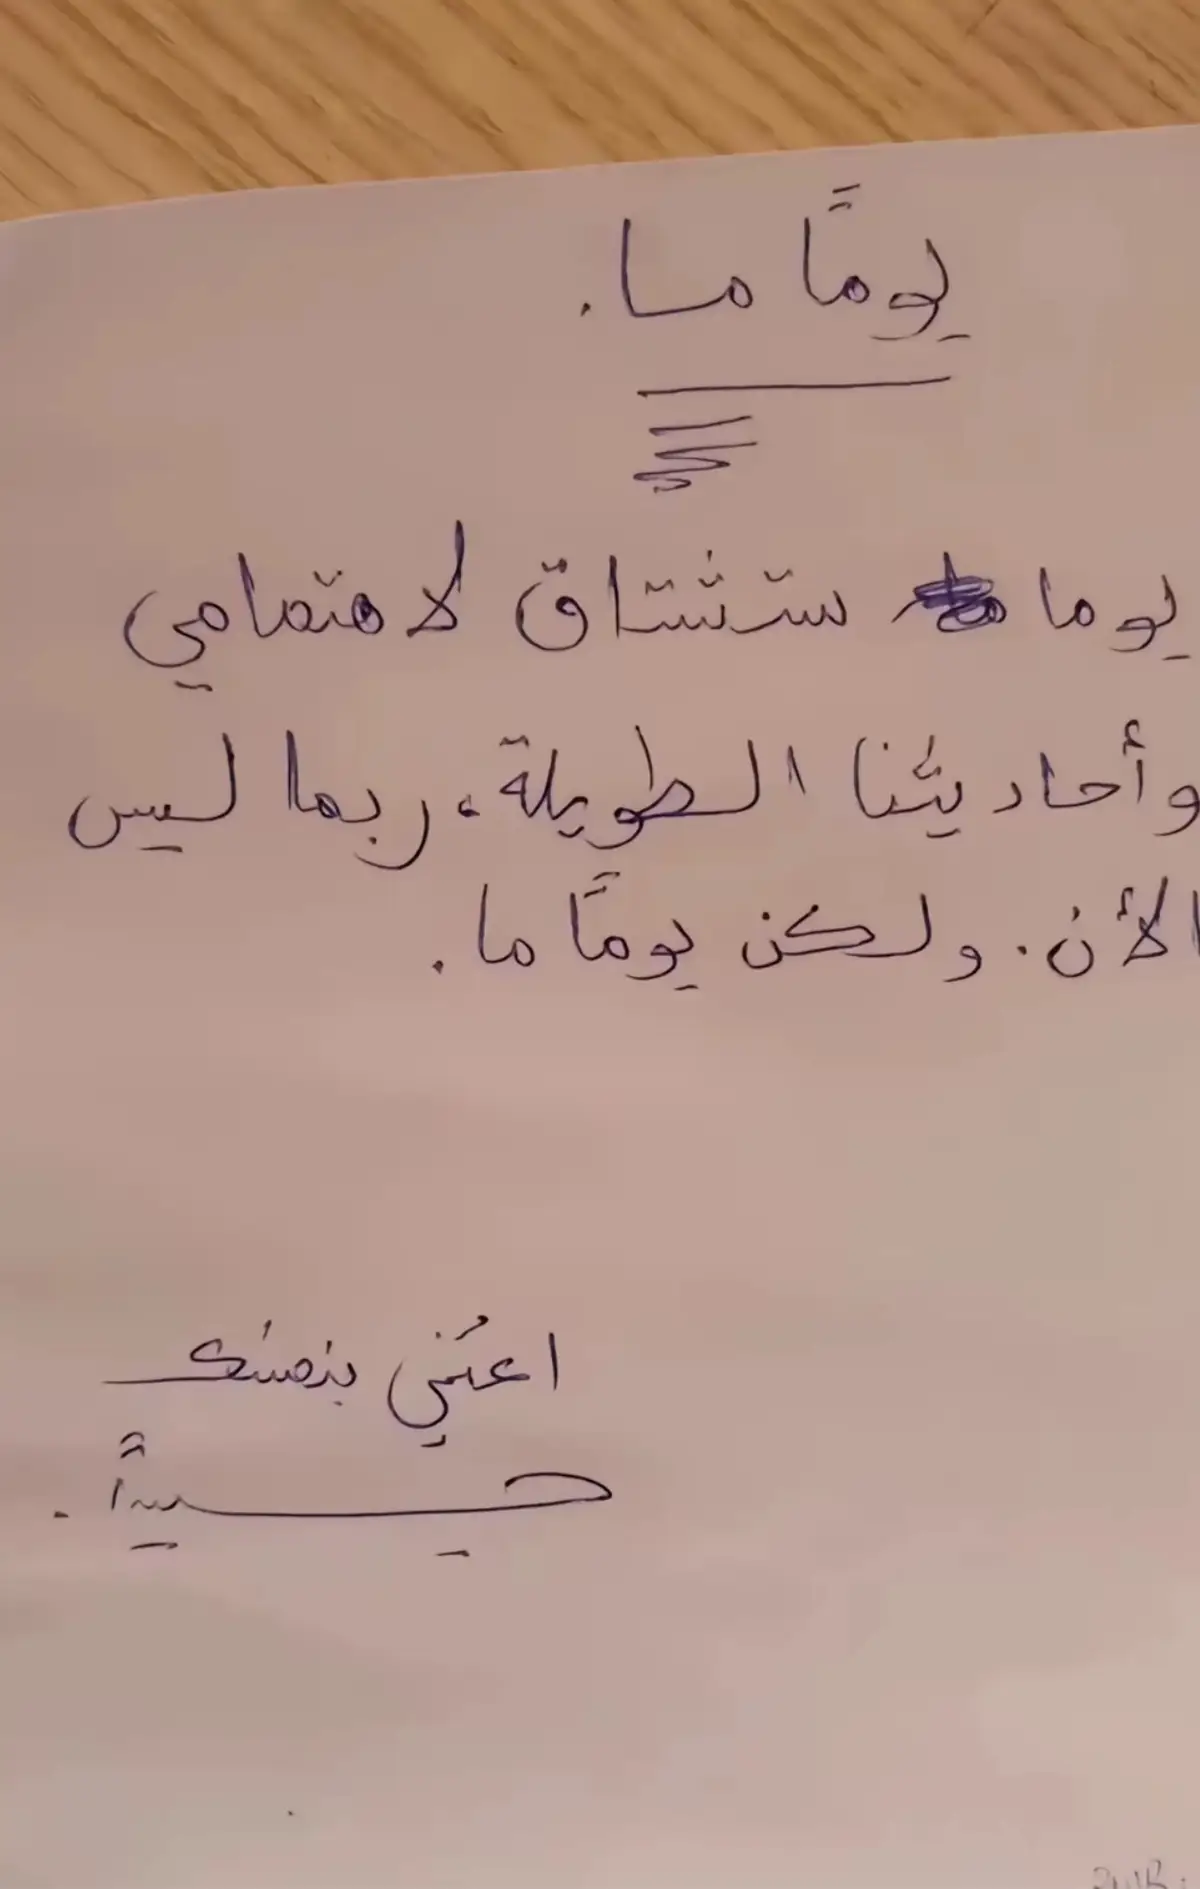 يومًا ما.
يوما ستشتاق لاهتمامي
وأحاديثنا الطويلة، ربما ليس
الأن. ولكن يومًا ما.
اعتني بنفسك
جيداً.